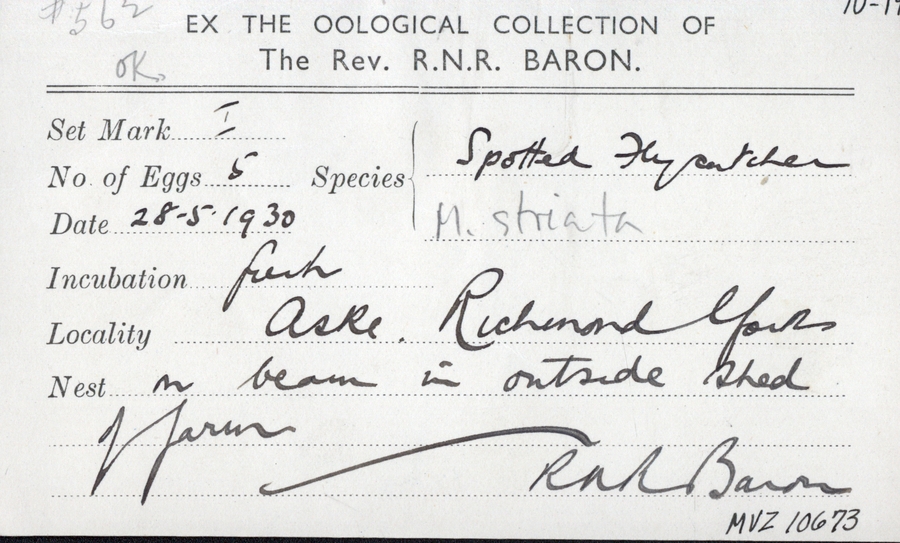 #562
EX THE OOLOGICAL COLLECTION OF
OK.
The Rev. R.N.R. BARON.
Set Mark I
No. of Eggs 5 Species Spotted Flycatcher
M. striata
Date 28-5-1930
Incubation fresh
Locality Aske. Richmond Yorks
Nest on beam in outside shed
of farm
RNR Baron
MVZ 10673